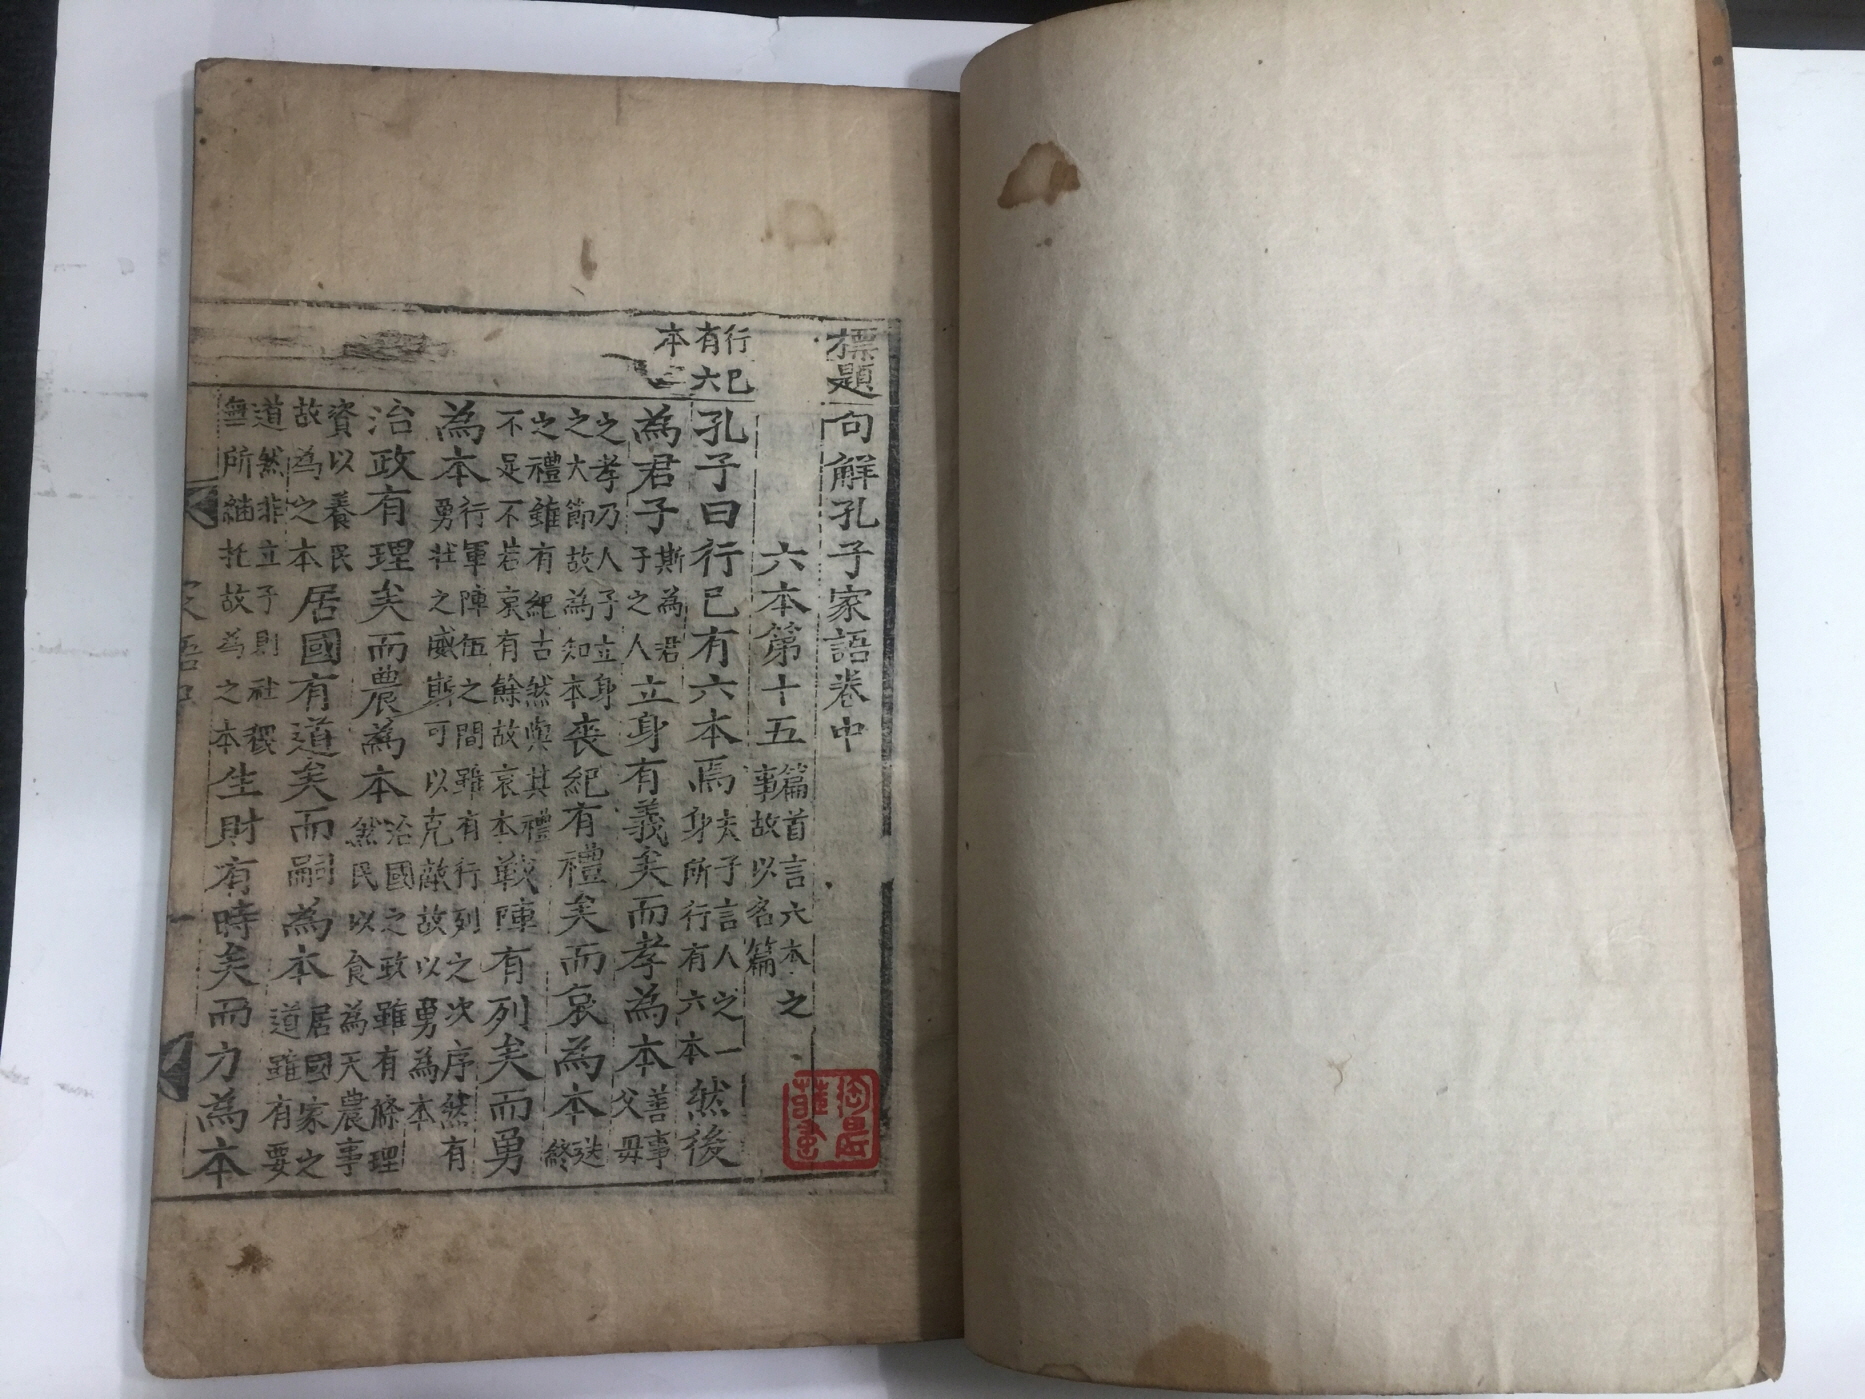 標題句解孔子家語卷中
六本第十五篇首言六本之事故以名篇
行已有六本
孔子曰行已有六本焉夫子言人之一身所行有六本然後
為君子斯為君子之人立身有義矣而孝為本善事父毋
之孝乃人子立身之大節故為知本喪紀有禮矣而哀為本送終
之禮雖有紀古然與其禮不足不若哀有餘故哀本戰陣有列矣而勇
為本行軍陣伍之間雖有行列之次序然有勇壯之威斯可以克敵故以勇為本
治政有理矣而農為本治國之政雖有條理然民以食為天農事
資以養民故為之本居國有道矣而嗣為本居國家之道雖有要
道然非立子則社稷無所托故為之本生財有時矣而力為本